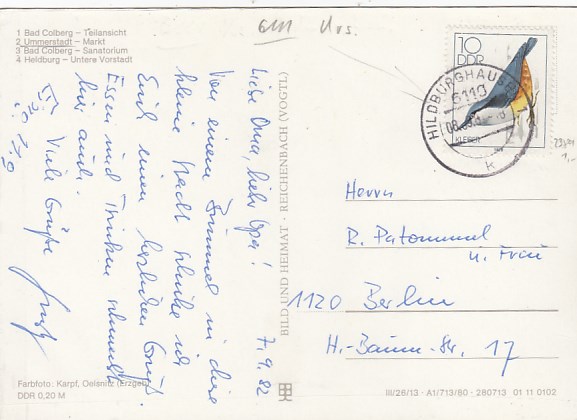 1 Bad Colberg – Teilansicht
2 Ummerstadt – Markt
3 Bad Colberg – Sanatorium
4 Heldburg – Untere Vorstadt
7.9.82
Liebe Oma, lieber Opa!
Von einem Bummel in diese
kleine Stadt schicke ich
Euch einen herzlichen Gruß.
Essen und Trinken schmeckt
hier auch.
Viele Grüße
BILD UND HEIMAT · REICHENBACH (VOGTL)
Farbfoto: Karpf, Oelsnitz (Erzgeb)
DDR 0,20 M
10
DDR
KLEIBER
HILDBURGHAUSEN 1
6110
Herrn
u. Frau
1120 Berlin
H.-Baum-Str. 17
III/26/13 · A1/713/80 · 280713 01 11 0102